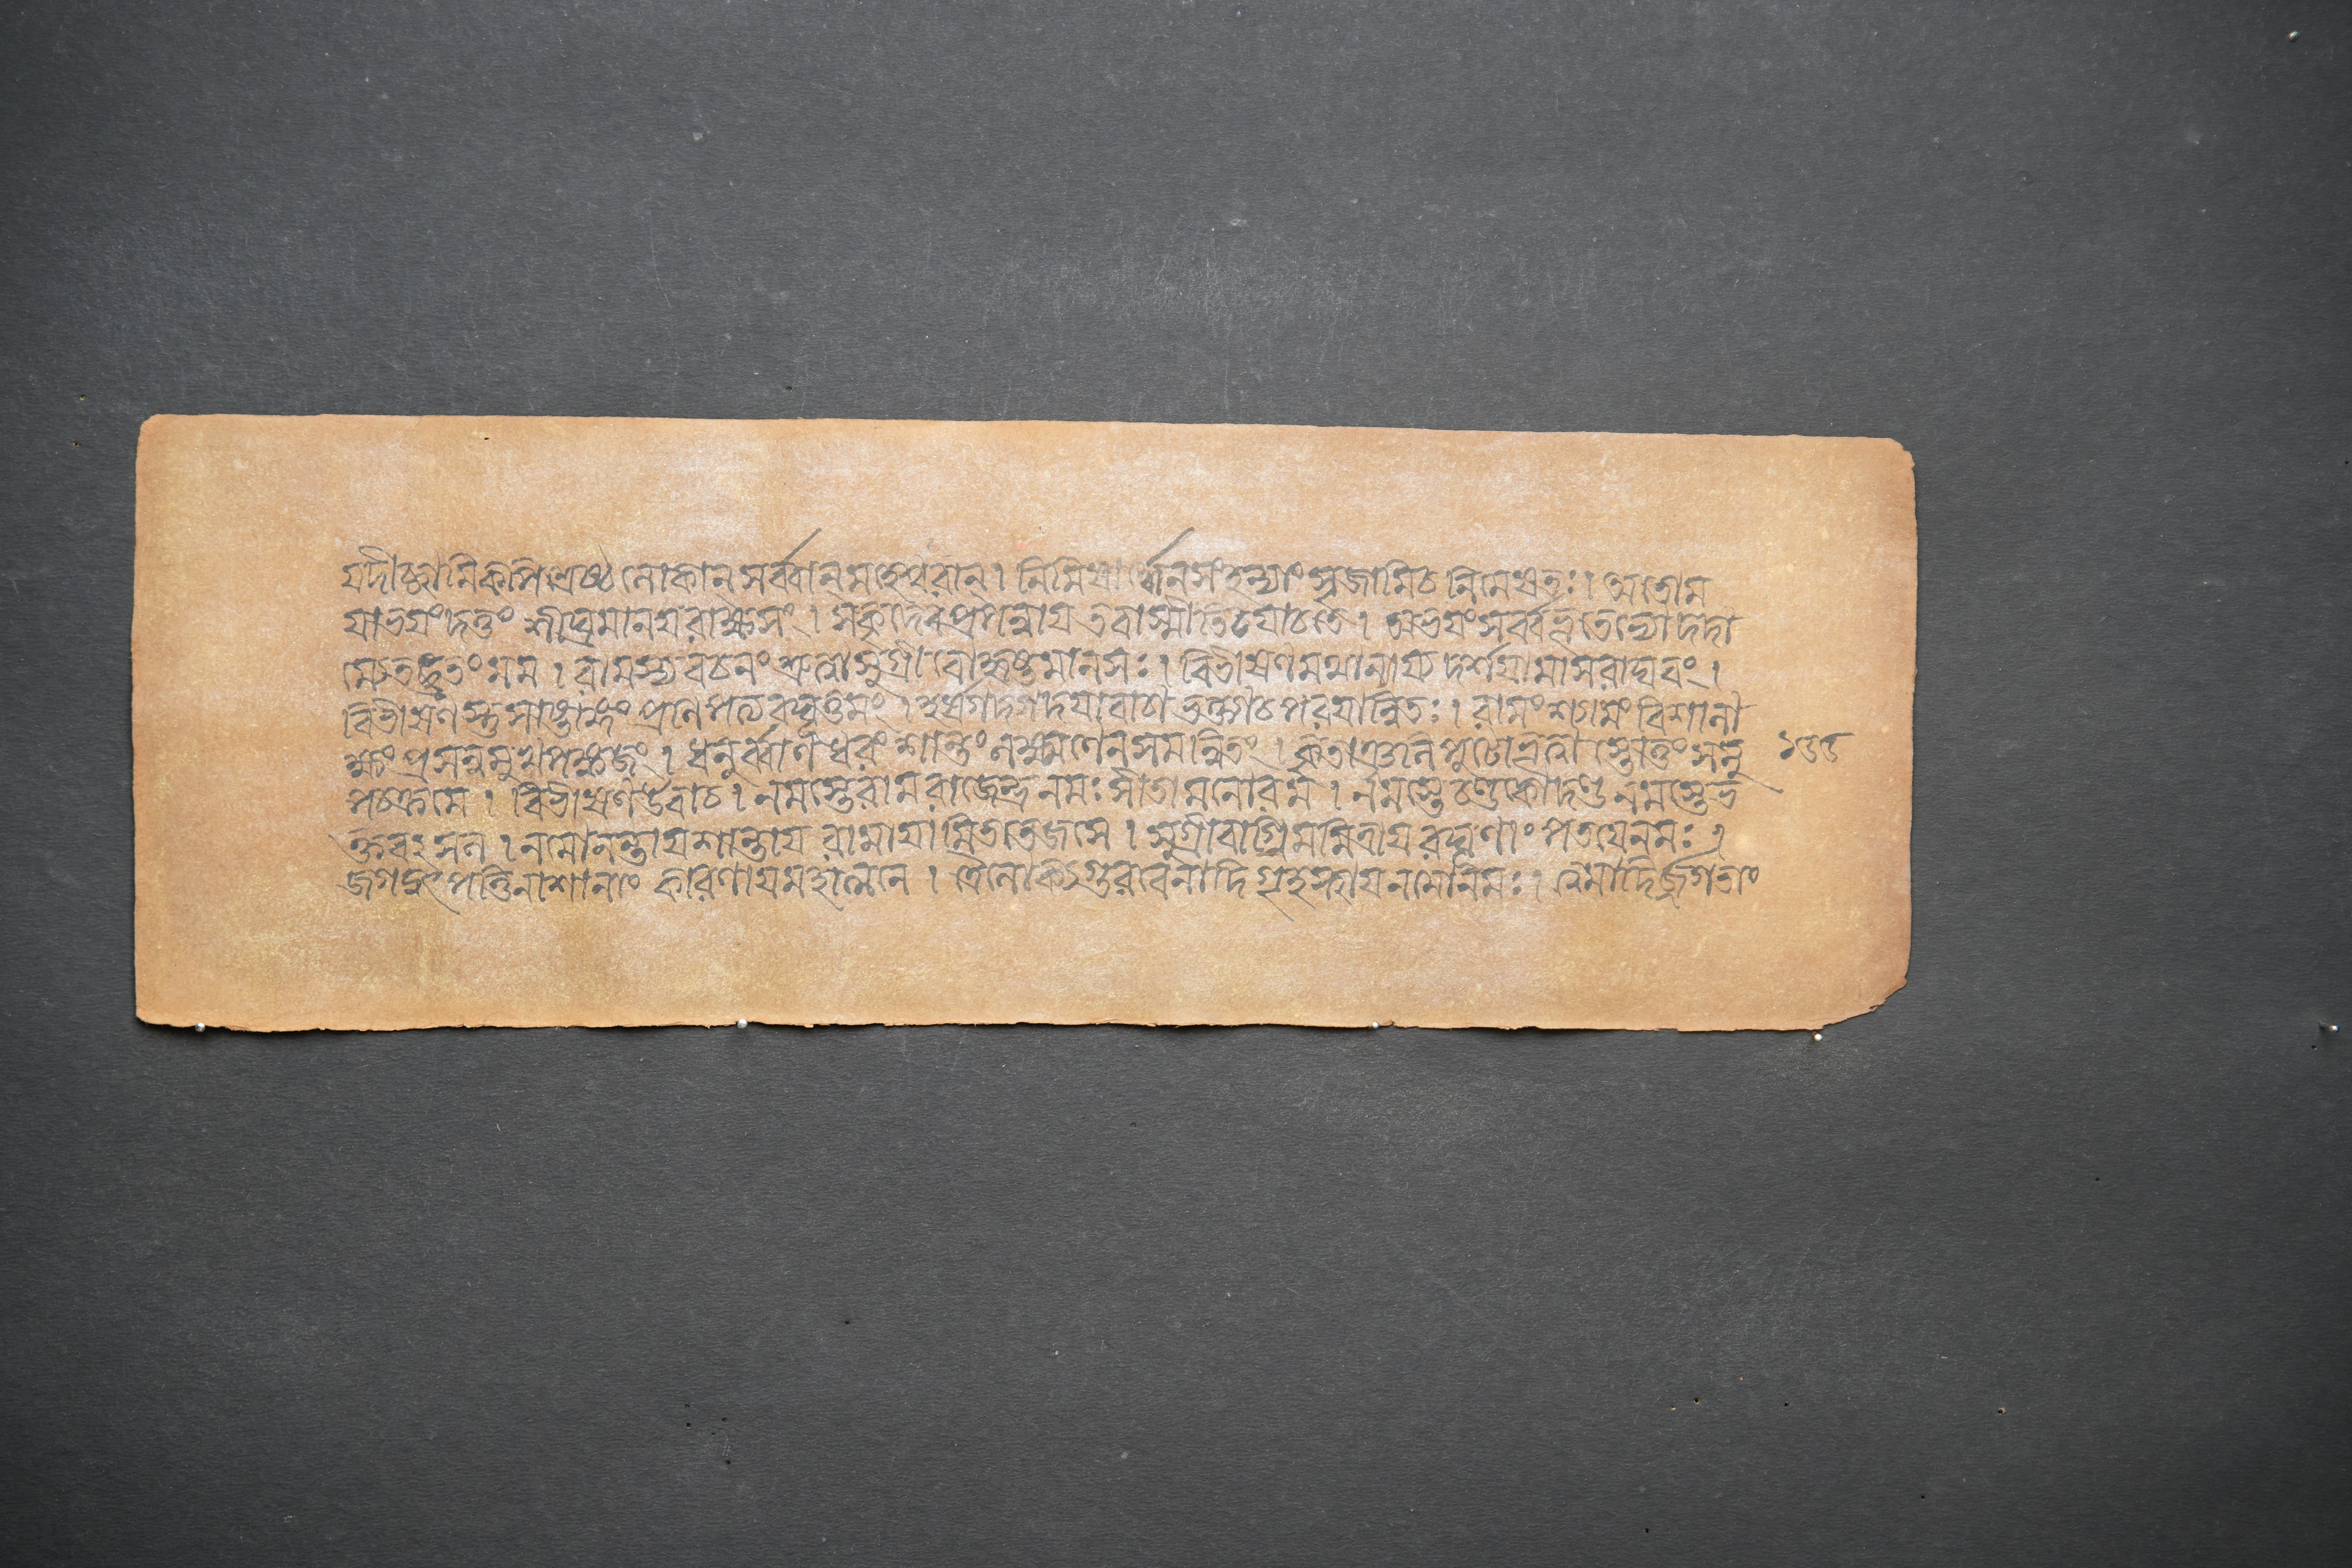 যদীচ্ছামিকপিশ্রেষ্ঠ লোকান্ সর্ব্বান্মহেশ্বরান্। নিমিষার্দ্ধেনসংহন্যাং সৃজামিচ নিমেষতঃ। অতোম
যাভয়ংদত্তং শীঘ্রমানয়রাক্ষসং। সকৃদেবপ্রপন্নায় তবাস্মীতিচযাচতে। অভয়ংসর্ব্বভূতেভ্যোদদা
ম্যেতদ্ব্রতংমম। রামস্যবচনং শ্রুত্বাসুগ্রীবোহৃষ্টমানসঃ। বিভীষণমথানায্য দর্শয়ামাসরাঘবং।
বিভীষণস্তুসাষ্টাঙ্গং প্রণিপত্যরঘূত্তমং। হর্ষগদ্গদয়াবাচা ভক্ত্যাচপরয়ান্বিতঃ। রামংশ্যামংবিশালা
ক্ষংপ্রসন্নমুখপঙ্কজং। ধনুর্ব্বাণধরং শান্তংলক্ষ্মণেনসমন্বিতং। কৃতাঞ্জলিপুটোভূত্বা স্তোতুংসমু
পচক্রমে। বিভীষণউবাচ। নমস্তেরামরাজেন্দ্রনমঃসীতামনোরম। নমস্তেচণ্ডকোদণ্ড নমস্তেভ
ক্তবৎসল। নমোনন্তায়শান্তায় রামায়ামিততেজসে। সুগ্রীবাগ্নিমন্মিত্রায়রঘূণাং পতয়েনমঃ।
জগদুৎপত্তিনাশানাং কারণায়মহাত্মনে। ত্রৈলোক্যগুরবেনাদি গৃহস্থায়নমোনমঃ। ত্বমাদির্জগতাং